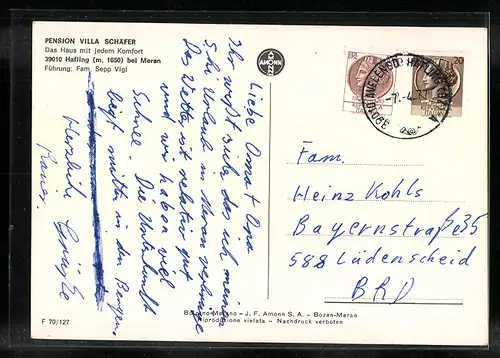 PENSION VILLA SCHÄFER
Das Haus mit jedem Komfort
39010 Hafling (m. 1650) bei Meran
Führung: Fam. Sepp Vigl
AMONN
Liebe Oma + Opa
Ihr wißt ja, daß ich meinen
Urlaub in Meran verbringe
Das Wetter ist relativ gut
und wir haben viel
Schnee. Die Unterkunft
liegt mitten in den Bergen.
Herzliche Grüße
Rainer.
F 70/127
Bolzano-Merano – J. F. Amonn S. A. – Bozen-Meran
Riproduzione vietata – Nachdruck verboten
20
Fam.
Heinz Kohls
Bayernstraße 35
588 Lüdenscheid
BRD